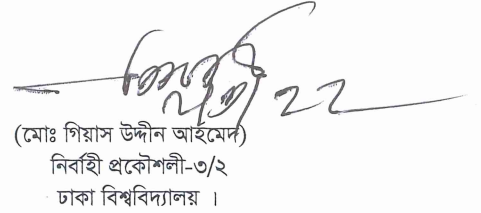 ২২
(মোঃ গিয়াস উদ্দীন আহমেদ)
নির্বাহী প্রকৌশলী-৩/২
ঢাকা বিশ্ববিদ্যালয় ।